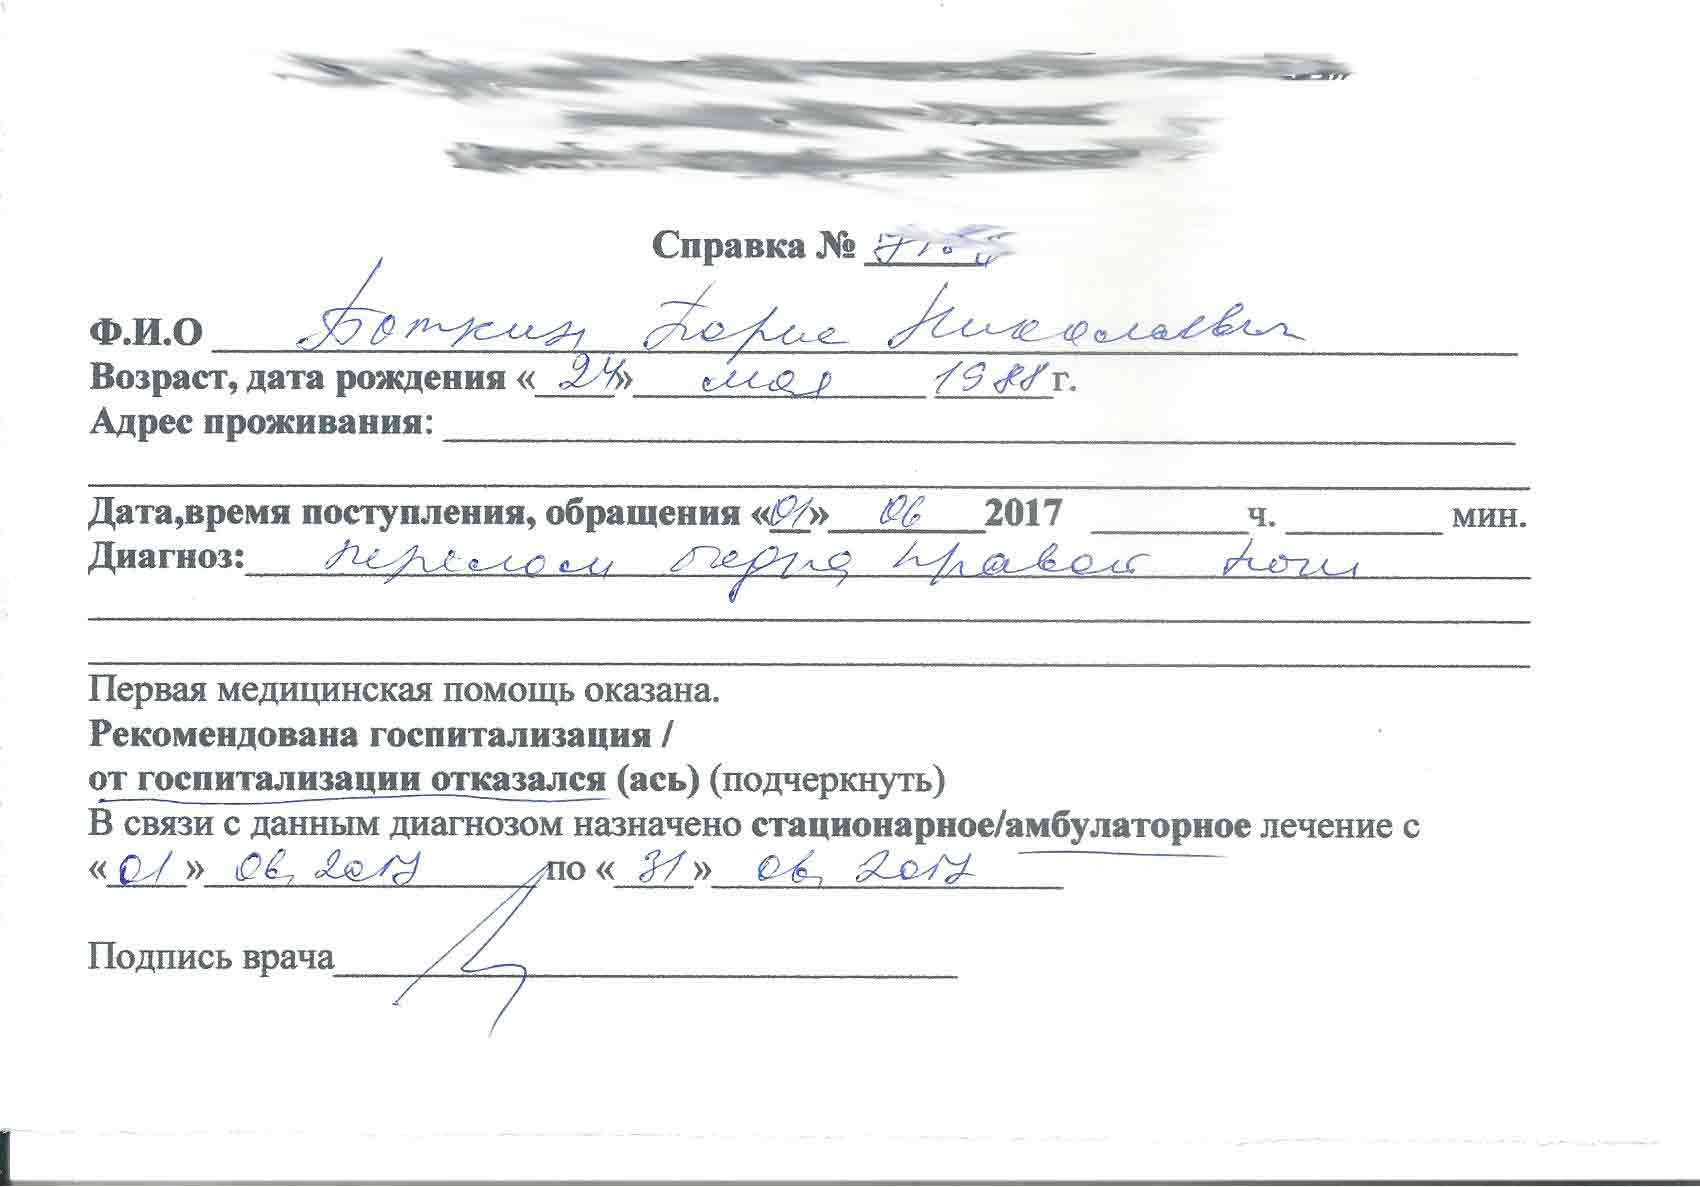 Справка №
Ф.И.О Боткин Борис Николаевич
Возраст, дата рождения «24» мая 1988 г.
Адрес проживания:
Дата,время поступления, обращения «01» 06 2017 ч. мин.
Диагноз: перелом бедра правой ноги
Первая медицинская помощь оказана.
Рекомендована госпитализация /
от госпитализации отказался (ась) (подчеркнуть)
В связи с данным диагнозом назначено стационарное/амбулаторное лечение с
«01» 06, 2017 по «31» 06, 2017
Подпись врача